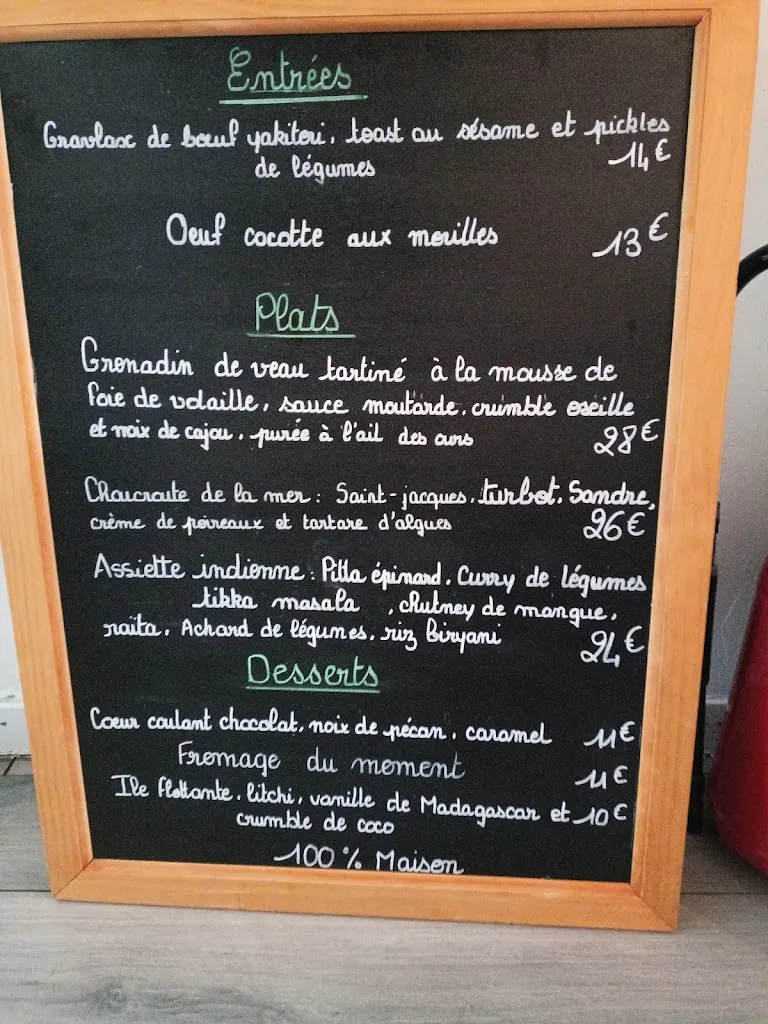 Entrées
Gravlax de boeuf yakitori, toast au sésame et pickles
de légumes 14€
Oeuf cocotte aux morilles 13€
Plats
Grenadin de veau tartiné à la mousse de
foie de volaille, sauce moutarde, crumble oseille
et noix de cajou, purée à l'ail des ours 28€
Choucroute de la mer : Saint-jacques, turbot, Sandre,
crème de poireaux et tartare d'algues 26€
Assiette indienne : Pitta épinard, Curry de légumes
tikka masala , chutney de mangue,
raïta, Achard de légumes, riz biryani 24€
Desserts
Coeur coulant chocolat, noix de pécan, caramel 11€
Fromage du moment 11€
Ile flottante, litchi, vanille de Madagascar et 10€
crumble de coco
100% Maison